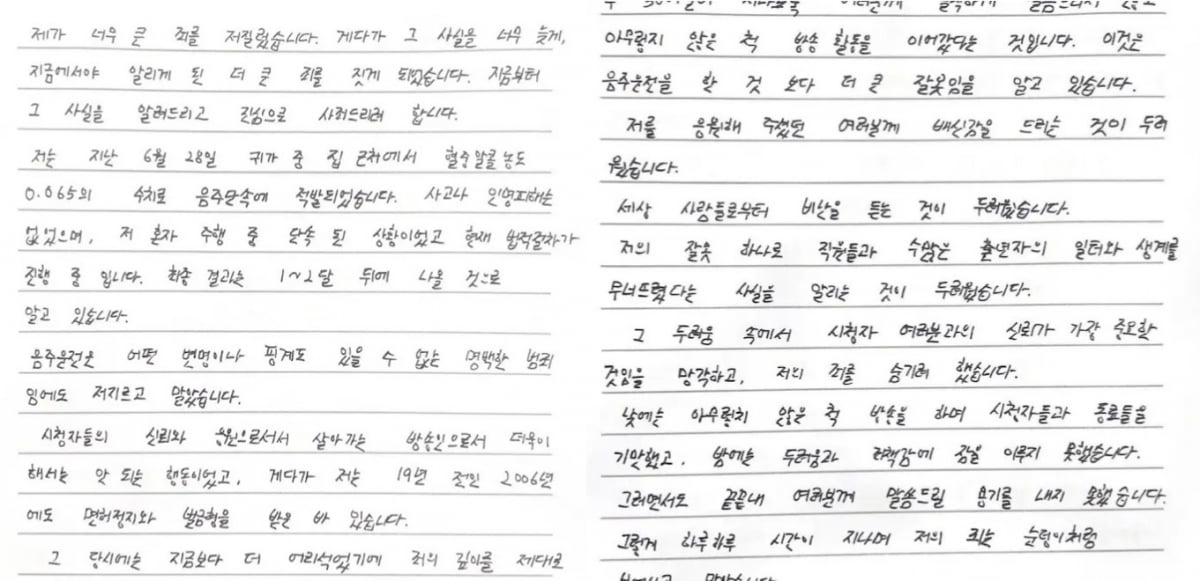 제가 너무 큰 죄를 저질렀습니다. 게다가 그 사실을 너무 늦게,
지금에서야 알리게 된 더 큰 죄를 짓게 되었습니다. 지금부터
그 사실을 알려드리고 진심으로 사죄드리려 합니다.
저는 지난 6월 28일 귀가 중 집 근처에서 혈중알콜농도
0.065의 수치로 음주단속에 적발되었습니다. 사고나 인명피해는
없었으며, 저 혼자 주행 중 단속 된 상황이었고 현재 법적절차가
진행 중 입니다. 최종 결과는 1~2달 뒤에 나올 것으로
알고 있습니다.
음주운전은 어떤 변명이나 핑계도 있을 수 없는 명백한 범죄
임에도 저지르고 말았습니다.
시청자들의 신뢰와 응원으로서서 살아가는 방송인으로서 더욱이
해서는 안 되는 행동이었고, 게다가 저는 19년 전인 2006년
에도 면허정지와 벌금형을 받은 바 있습니다.
그 당시에는 지금보다 더 어리석었기에 죄의 깊이를 제대로
아무렇지 않은 척 방송 활동을 이어갔다는 것입니다. 이것은
음주운전을 한 것 보다 더 큰 잘못임을 알고 있습니다.
저를 응원해 주셨던 여러분께 배신감을 드리는 것이 두려
웠습니다.
세상 사람들로부터 비난을 듣는 것이 두려웠습니다.
저의 잘못 하나로 직원들과 수많은 출연자의 일터와 생계를
무너뜨렸다는 사실을 알리는 것이 두려웠습니다.
그 두려움 속에서 시청자 여러분과의 신뢰가 가장 중요한
것임을 망각하고, 저의 죄를 숨기려 했습니다.
낮에는 아무렇치 않은 척 방송을 하며 시청자들과 동료들을
기만했고, 밤에는 두려움과 죄책감에 잠을 이루지 못했습니다.
그러면서도 끝끝내 여러분께 말씀드릴 용기를 내지 못했습니다.
그렇게 하루하루 시간이 지나며 저의 죄는 눈덩이처럼